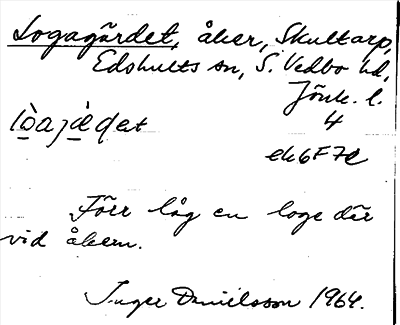 Logagärdet, åker, Skultarp,
Edshults sn, S. Vedbo hd,
Jönk. l.
4
ek6F7e
Förr låg en loge där
vid åkern.
Inger Danielsson 1964.